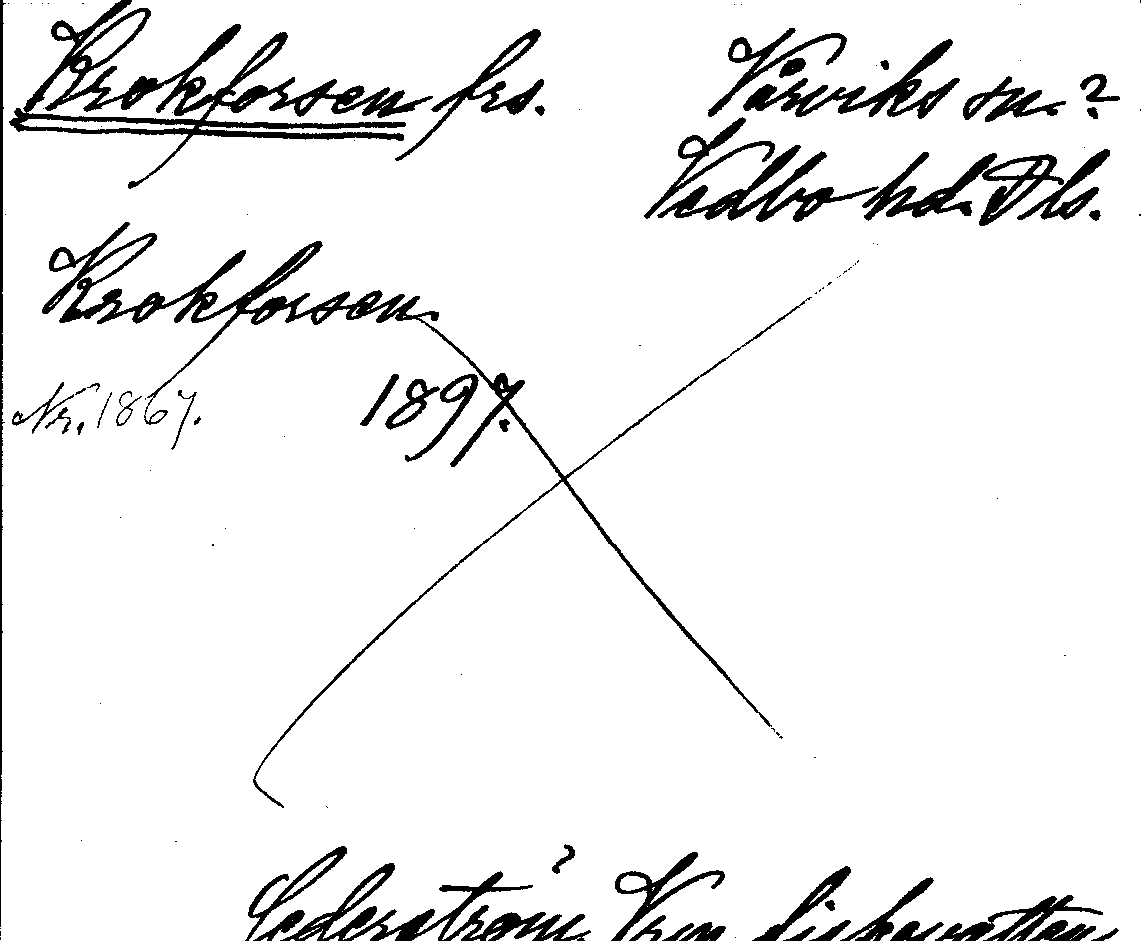 Krokforsen frs. Vårviks sn.?
Vedbo hd. Dls.
Krokforsen.
Nr. 1867. 1897.
?
Cederström, Vrm. fiskevatten